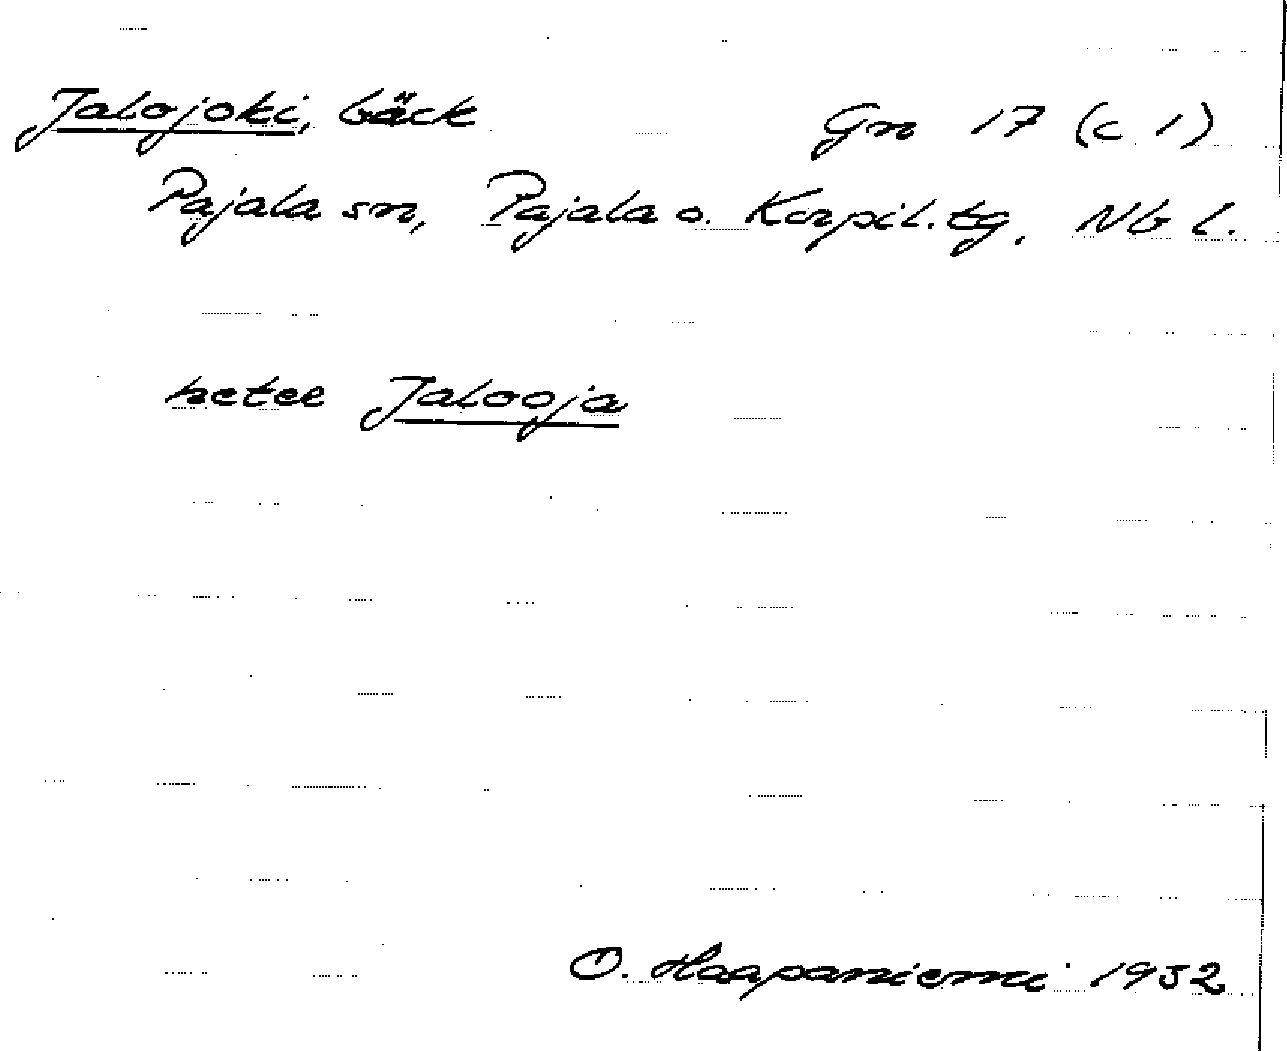 Jalojoki, bäck Gn 17 (c 1)
Pajala sn, Pajala o. Korpil. tg, Nb l.
heter Jalooja
O. Haapaniemi 1932